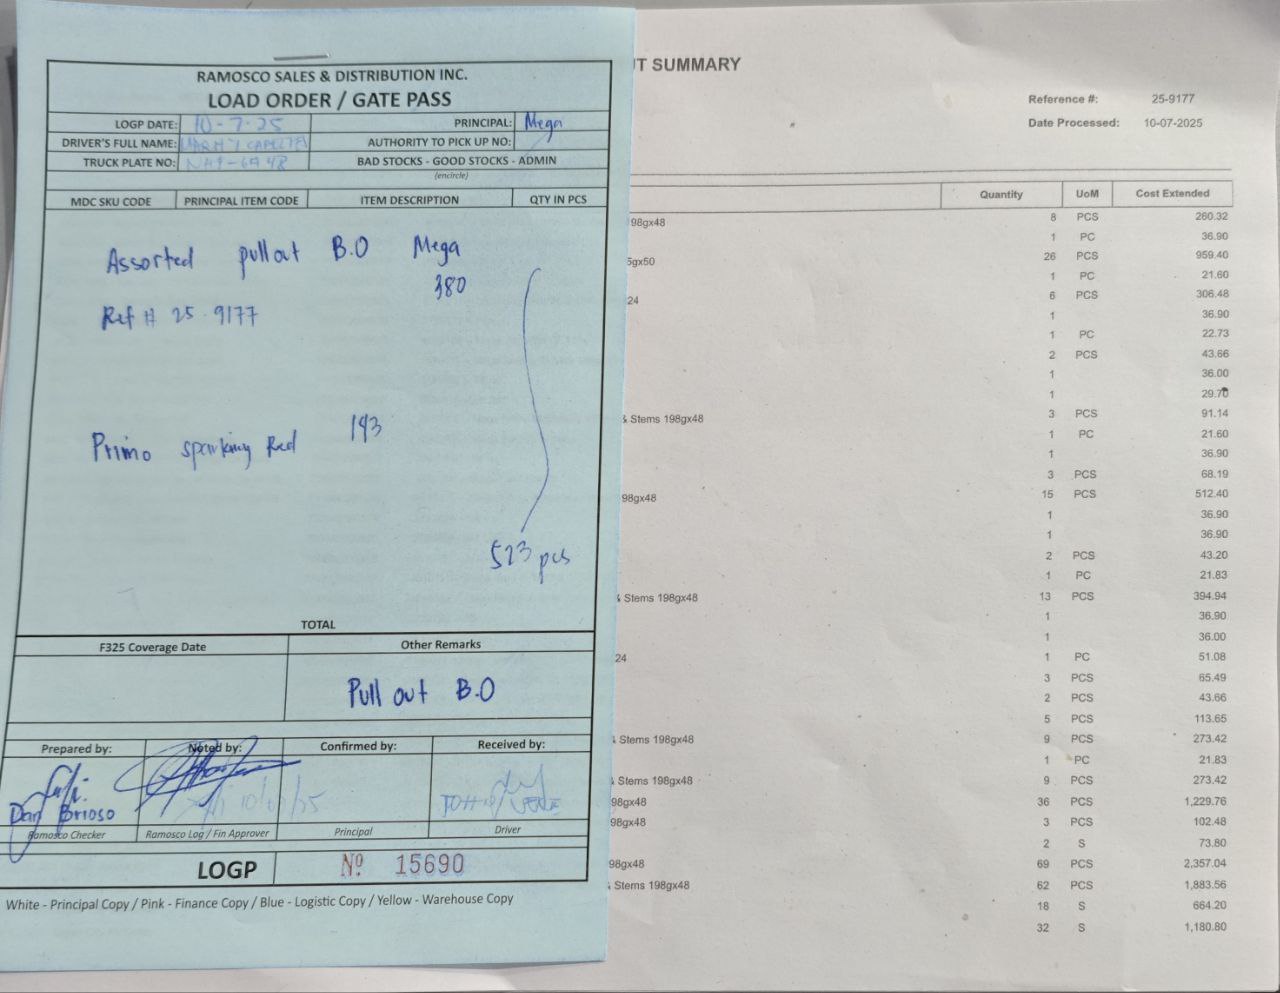 RAMOSCO SALES & DISTRIBUTION INC.
LOAD ORDER / GATE PASS
LOGP DATE: 10-7-25 PRINCIPAL: Mega
DRIVER'S FULL NAME: AUTHORITY TO PICK UP NO:
TRUCK PLATE NO: BAD STOCKS - GOOD STOCKS - ADMIN
(encircle)
MDC SKU CODE PRINCIPAL ITEM CODE ITEM DESCRIPTION QTY IN PCS
Assorted pullout B.O Mega
380
Ref # 25-9177
Primo Red 143
523 pcs
TOTAL
F325 Coverage Date Other Remarks
Pull out B.O
Prepared by: Noted by: Confirmed by: Received by:
Dan Brioso
Ramosco Checker Ramosco Log / Fin Approver Principal Driver
LOGP Nº 15690
White - Principal Copy / Pink - Finance Copy / Blue - Logistic Copy / Yellow - Warehouse Copy
T SUMMARY
Reference #: 25-9177
Date Processed: 10-07-2025
Quantity UoM Cost Extended
98gx48 8 PCS 260.32
1 PC 36.90
5gx50 26 PCS 959.40
1 PC 21.60
24 6 PCS 306.48
1 36.90
1 PC 22.73
2 PCS 43.66
1 36.00
1 29.70
& Stems 198gx48 3 PCS 91.14
1 PC 21.60
1 36.90
3 PCS 68.19
98gx48 15 PCS 512.40
1 36.90
1 36.90
2 PCS 43.20
1 PC 21.83
& Stems 198gx48 13 PCS 394.94
1 36.90
1 36.00
24 1 PC 51.08
3 PCS 65.49
2 PCS 43.66
5 PCS 113.65
& Stems 198gx48 9 PCS 273.42
1 PC 21.83
& Stems 198gx48 9 PCS 273.42
98gx48 36 PCS 1,229.76
98gx48 3 PCS 102.48
2 S 73.80
98gx48 69 PCS 2,357.04
& Stems 198gx48 62 PCS 1,883.56
18 S 664.20
32 S 1,180.80